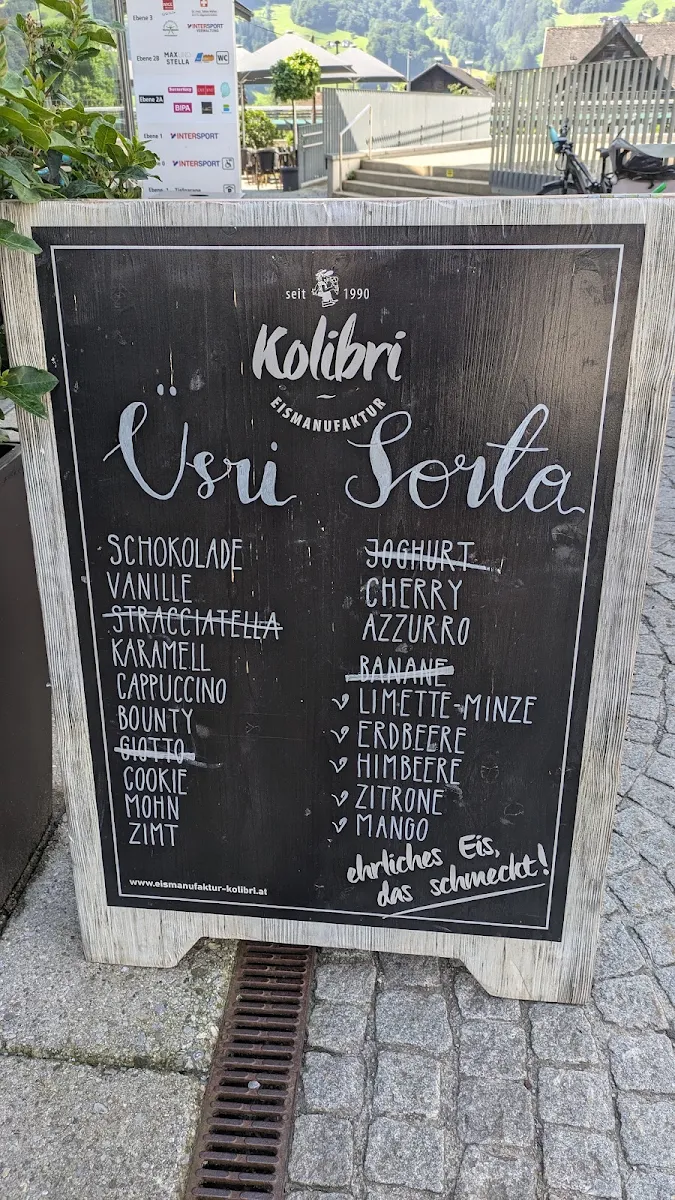 Ebene 3
INTERSPORT
VERWALTUNG
Ebene 2B
MAX AND
STELLA
WC
Ebene 2A
BIPA
Ebene 1
INTERSPORT
INTERSPORT
seit 1990
Kolibri
EISMANUFAKTUR
Üsri Sorta
SCHOKOLADE
VANILLE
STRACCIATELLA
KARAMELL
CAPPUCCINO
BOUNTY
GIOTTO
COOKIE
MOHN
ZIMT
JOGHURT
CHERRY
AZZURRO
BANANE
LIMETTE-MINZE
ERDBEERE
HIMBEERE
ZITRONE
MANGO
www.eismanufaktur-kolibri.at
ehrliches Eis,
das schmeckt!